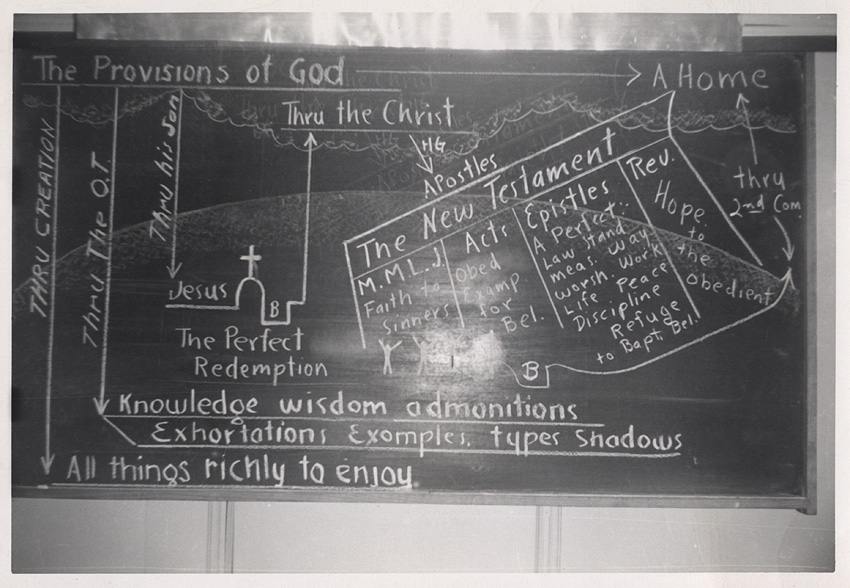 The Provisions of God
A Home
Thru the Christ
HG
Apostles
THRU CREATION
Thru The O.T.
Thru his Son
Jesus
B
The Perfect
Redemption
The New Testament
M.M.L.J.
Faith to
Sinners
Acts
Obed
Examp
for
Bel.
Epistles
A Perfect
Law Stand.
meas. Way
worsh. Work
Life Peace
Discipline
Refuge
to Bapt. Bel.
Rev.
Hope
to
the
obedient
thru
2nd Com.
B
Knowledge wisdom admonitions
Exhortations Exomples, types shadows
All things richly to enjoy